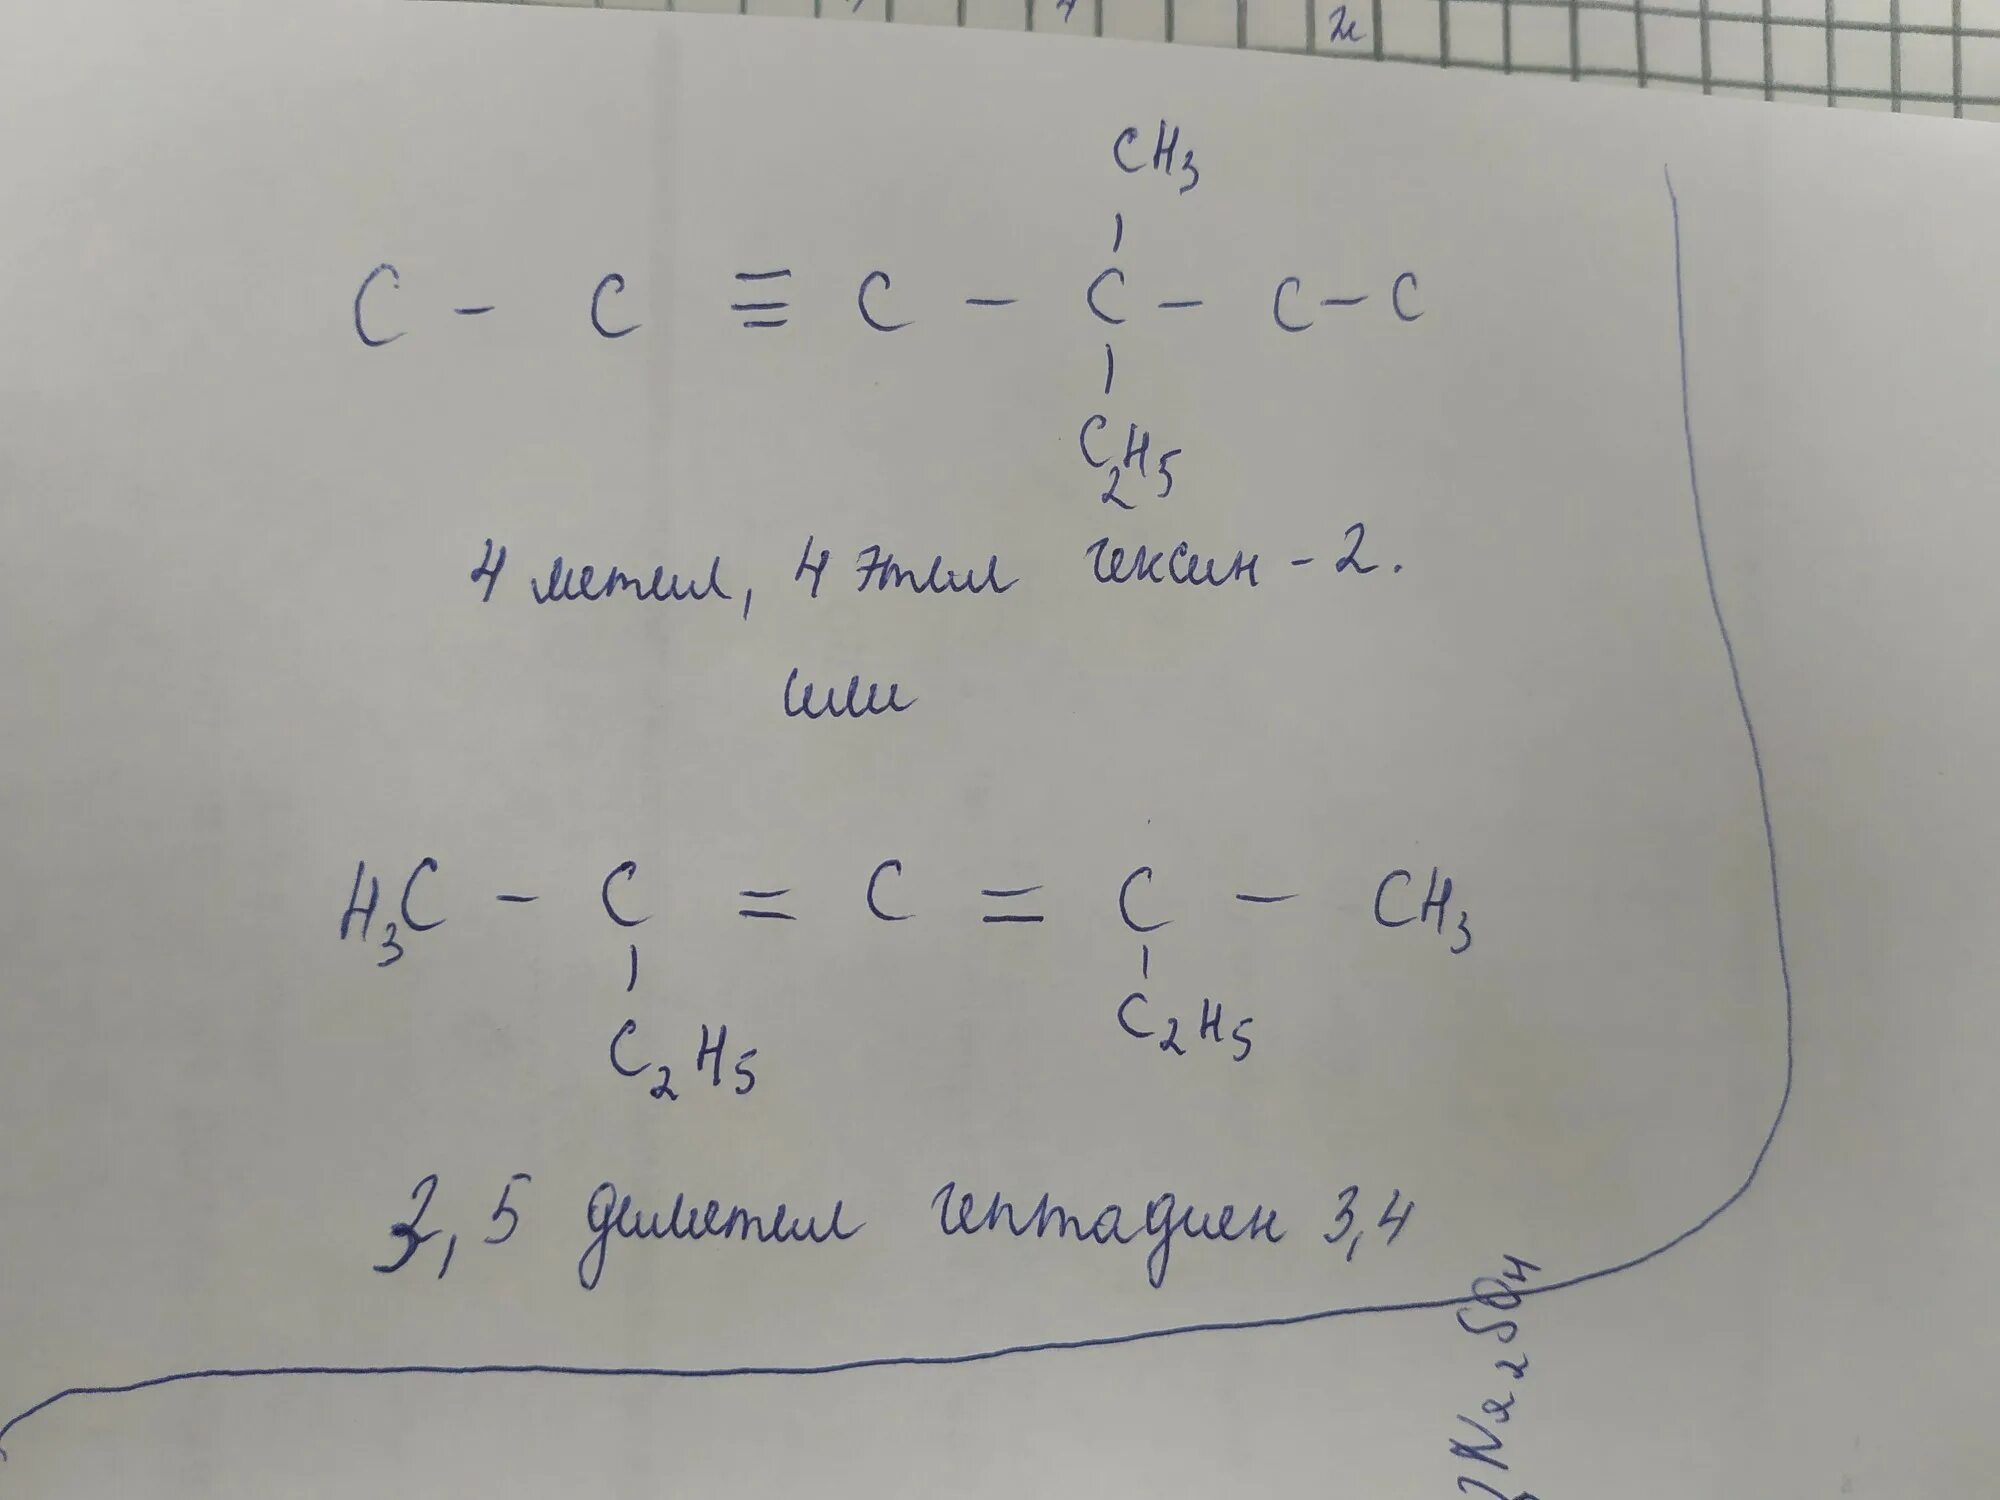 CH3
C - C ≡ C - C - C - C
C2H5
4 метил, 4 этил гексин - 2.
или
H3C - C = C = C - CH3
C2H5 C2H5
3, 5 диметил гептадиен 3,4
Na2SO4